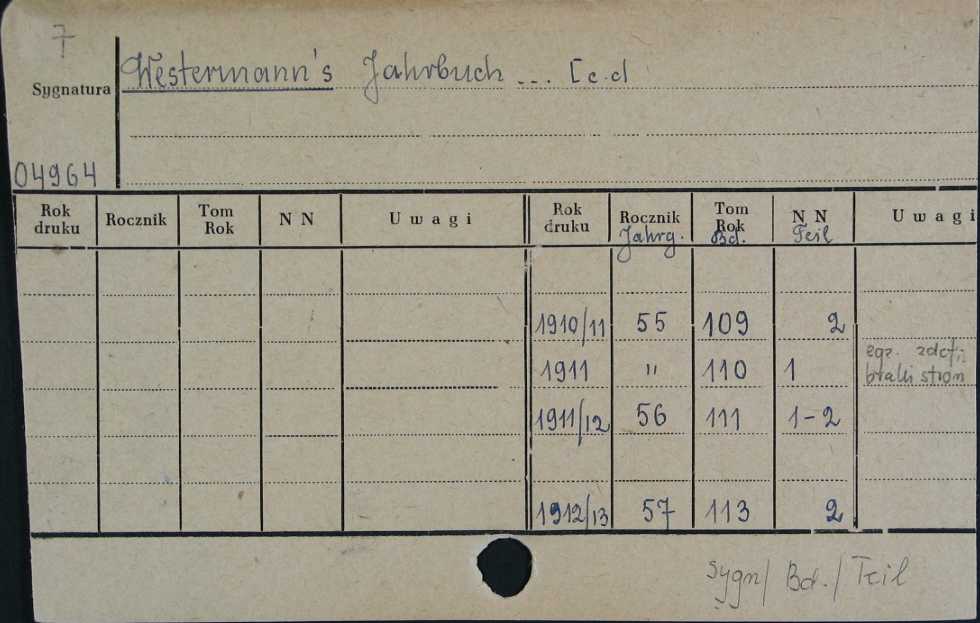 7
Westermann's Jahrbuch ... [c.d
Sygnatura
04964
Rok druku Rocznik Tom Rok N N U w a g i Rok druku Rocznik Jahrg. Tom Rok Bd. N N Teil U w a g i
1910/11 55 109 2
1911 " 110 1 egz. zdef.;
braki stron
1911/12 56 111 1-2
1912/13 57 113 2
sygn/ Bd./ Teil